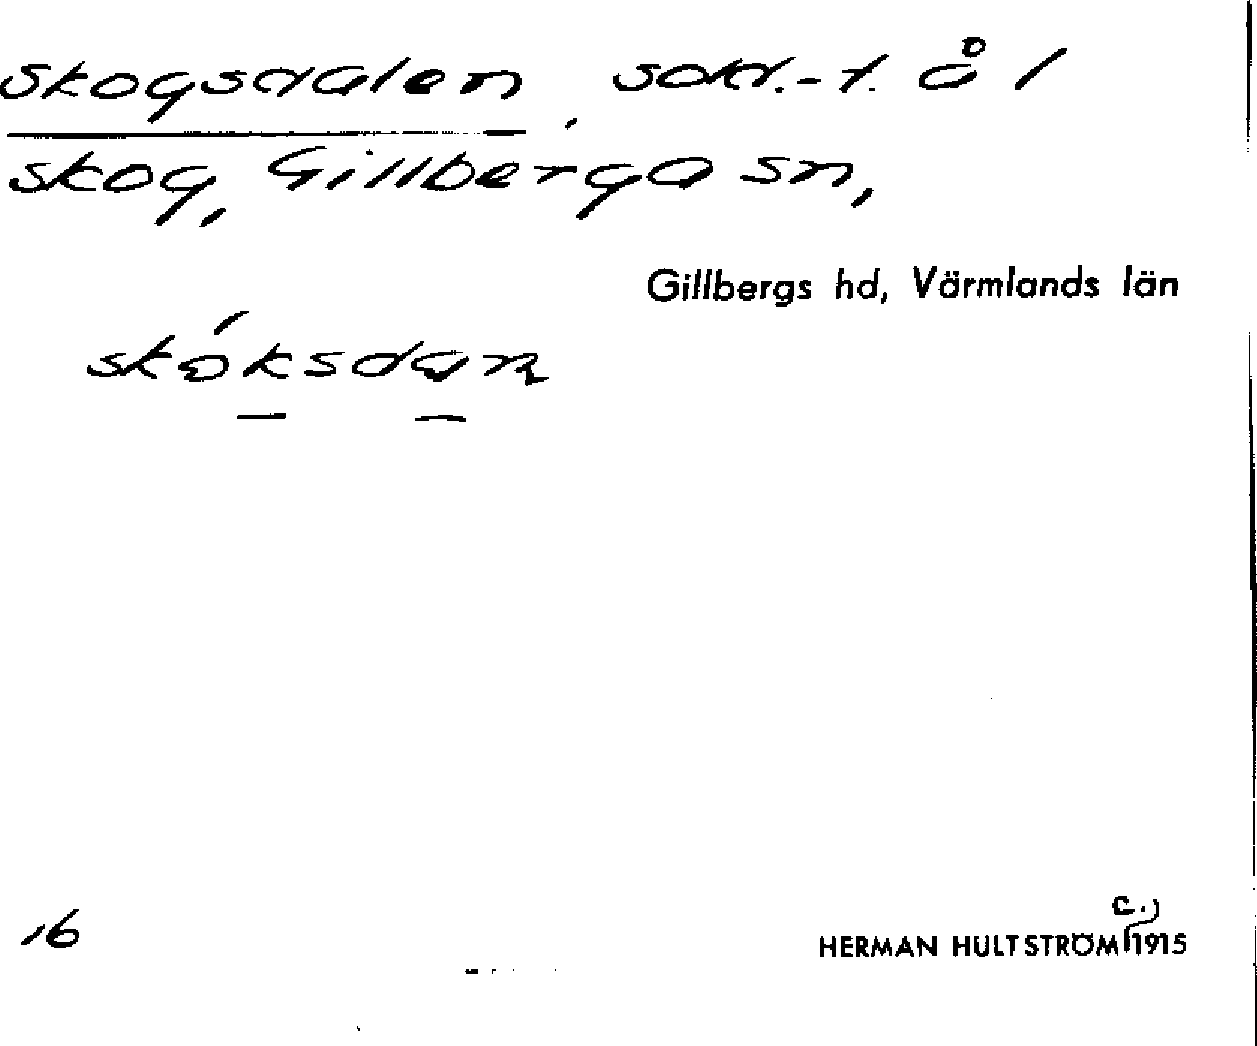 Skogsdalen, sold.-t. å 1
Skog, Gillberga sn,
Gillbergs hd, Värmlands län
skóksdan
16
c.)
HERMAN HULTSTRÖM 1915